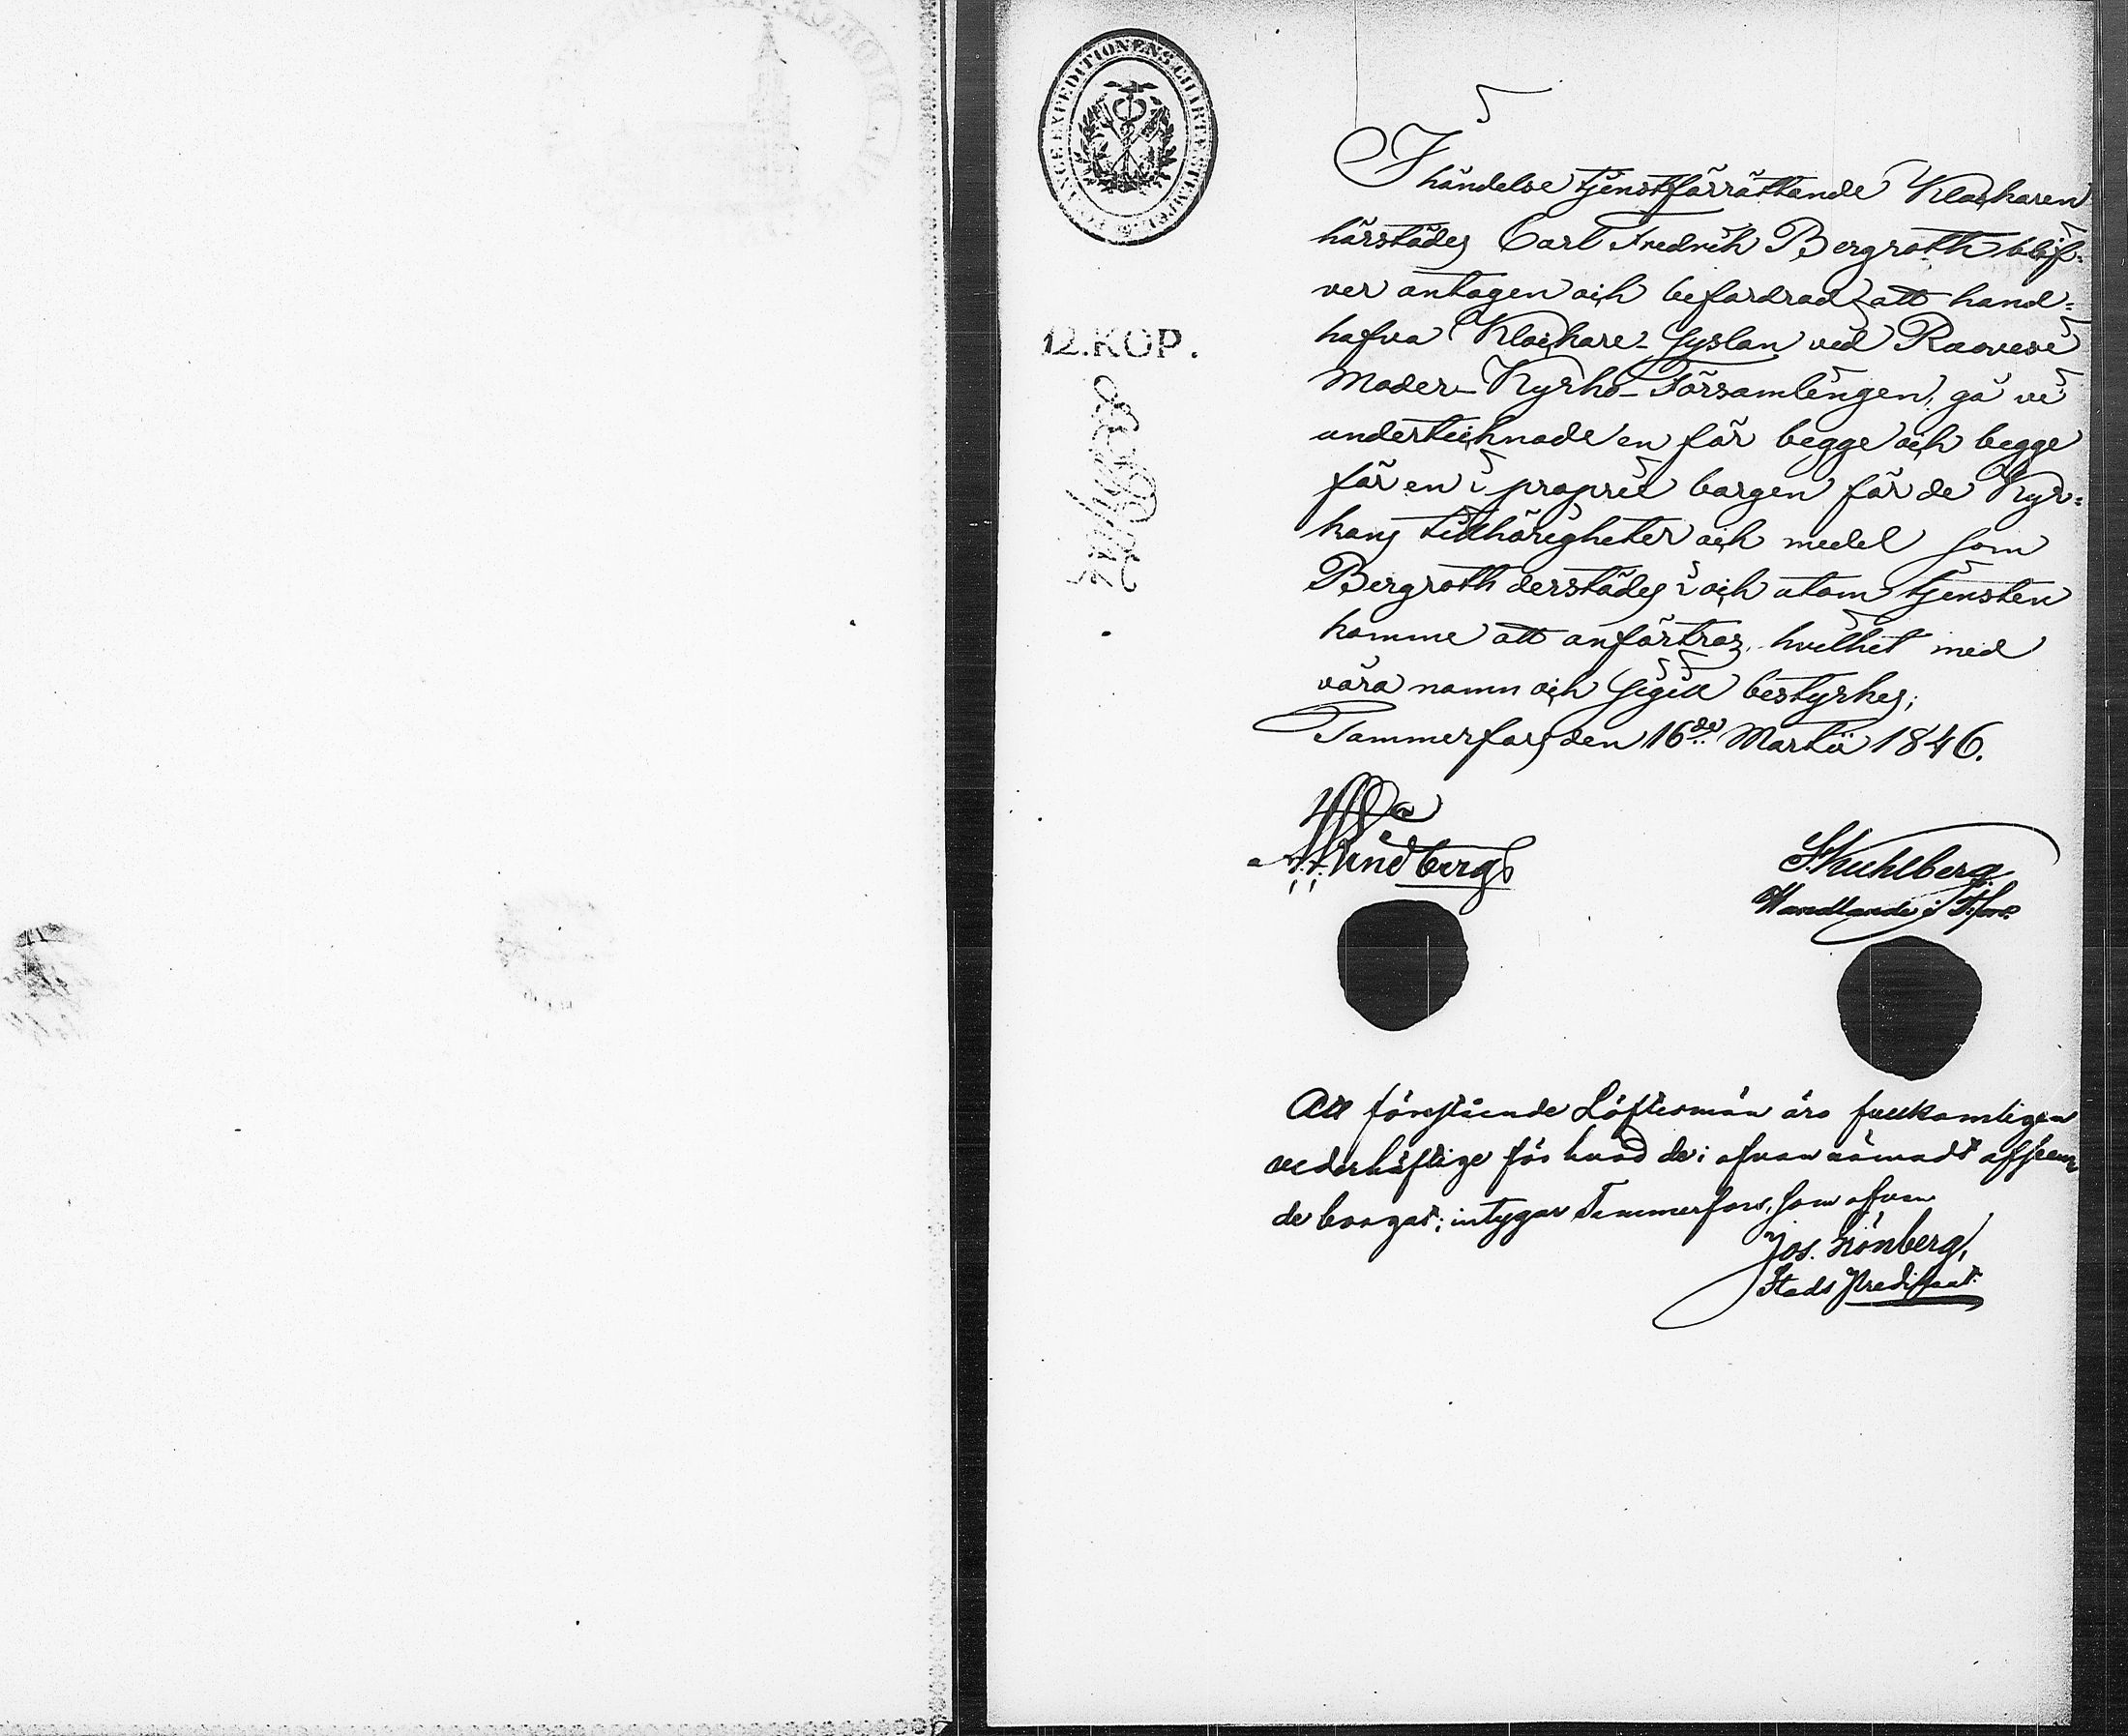 FINANCE EXPEDITIONENS CHARTÆ STEMPEL
12.KOP.
I händelse tjenstförrättande Klockaren
härstädes Carl Fredrik Bergroth blif-
ver antagen och befordrad att hand-
hafva Klockare-Syslan vid Ruovesi
Moder-Kyrko-Församlingen, gå vi
undertecknade en för begge och begge
för en i proprie borgen för de Kyr-
kans tillhörigheter och medel som
Bergroth derstädes i och utom tjensten
komme att anförtros, hvilket med
våra namn och Sigill bestyrkes;
Tammerfors den 16de Martii 1846.
Sundberg
S. Kuhlberg
Handlande i T:fors.
Att förestående Löftesmän äro fullkomligen
vederhäftige för hvad de i ofvannämndt afseen-
de borgat; intygar Tammerfors, som ofvan
Jos. Grönberg,
Stads Predikant.